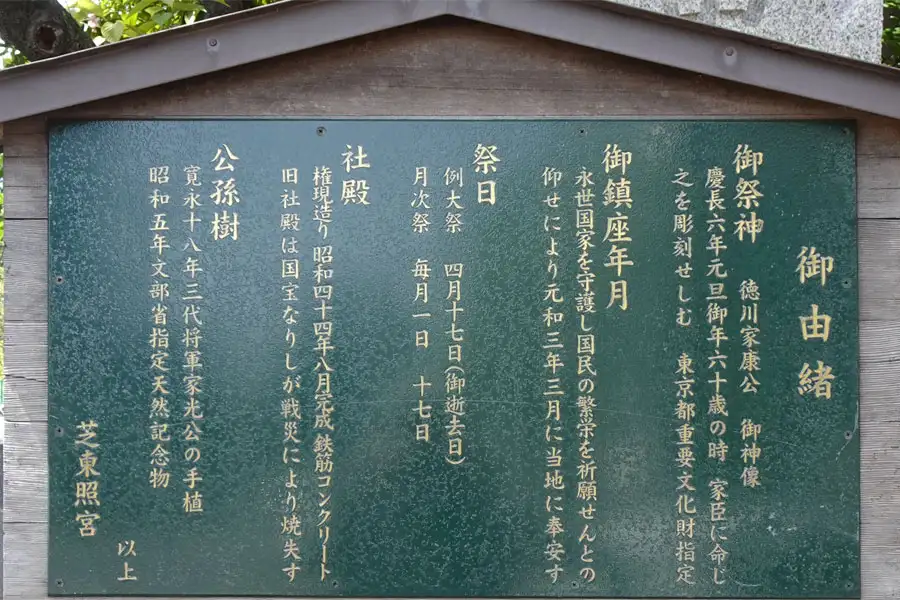 御由緒
御祭神 徳川家康公 御神像
慶長六年元旦御年六十歳の時 家臣に命じ
之を彫刻せしむ 東京都重要文化財指定
御鎮座年月
永世国家を守護し国民の繁栄を祈願せんとの
仰せにより元和三年三月に当地に奉安す
祭日
例大祭 四月十七日(御逝去日)
月次祭 毎月一日 十七日
社殿
権現造り 昭和四十四年八月完成 鉄筋コンクリート
旧社殿は国宝なりしが戦災により焼失す
公孫樹
寛永十八年三代将軍家光公の手植
昭和五年文部省指定天然記念物
以上
芝東照宮